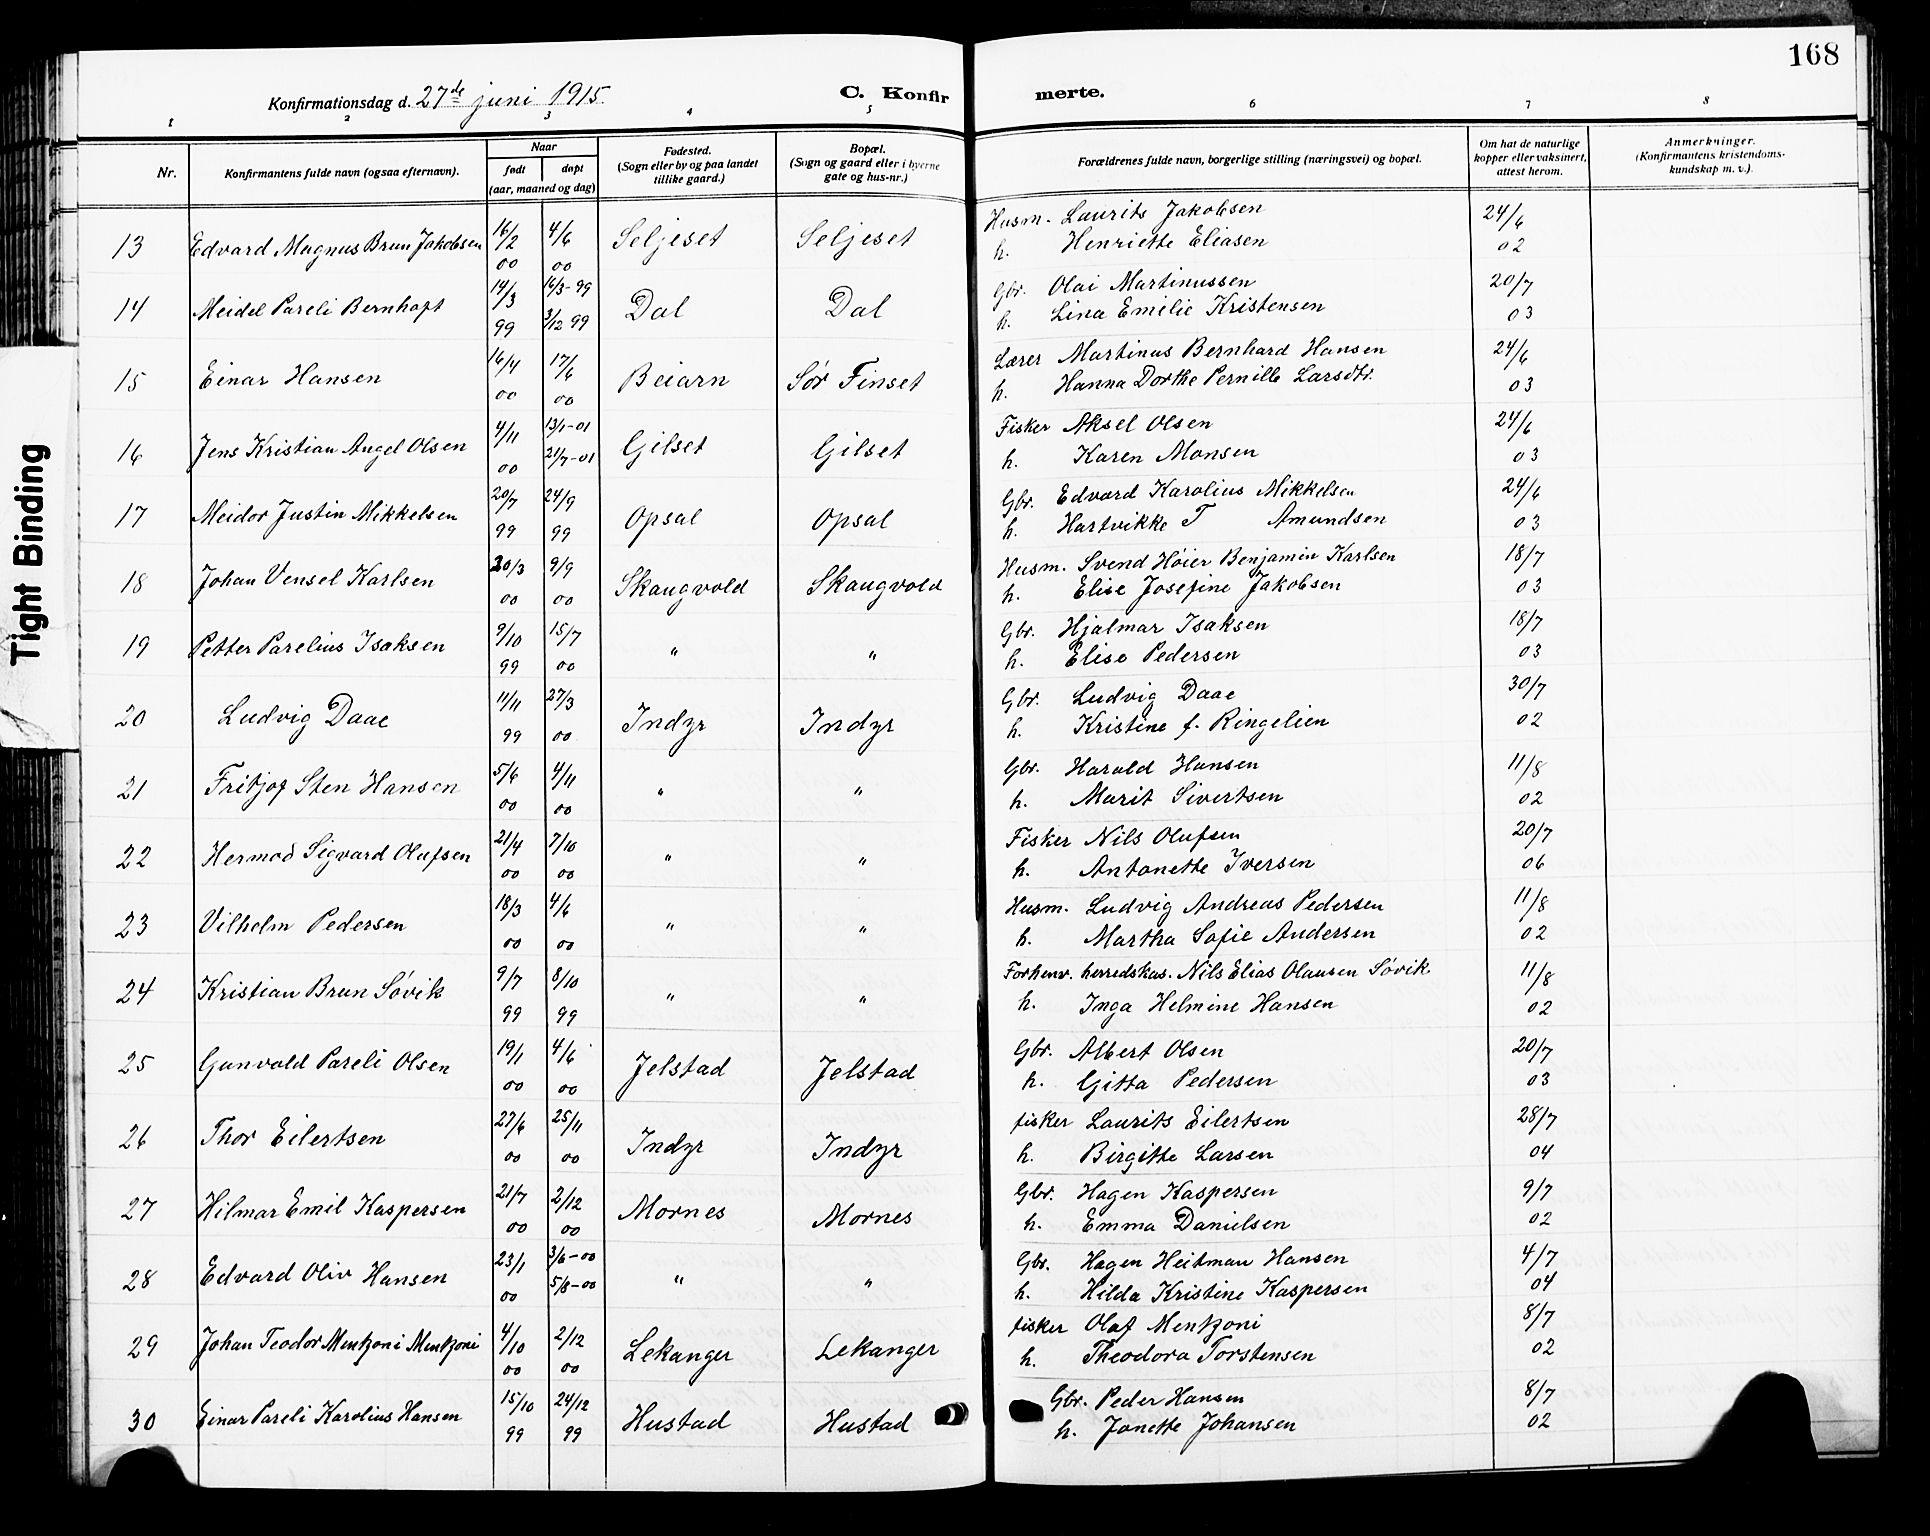 168
Konfirmationsdag d. 27de juni 1915.
C. Konfirmerte.
1 2 3 4 5 6 7 8
Nr. Konfirmantens fulde navn (ogsaa efternavn). Naar født døpt (aar, maaned og dag) Fødested. (Sogn eller by og paa landet tillike gaard.) Bopæl. (Sogn og gaard eller i byerne gate og hus-nr.) Forældrenes fulde navn, borgerlige stilling (næringsvei) og bopæl. Om hat de naturlige kopper eller vaksinert, attest herom. Anmerkninger. (Konfirmantens kristendoms-kundskap m. v.).
13 Edvard Magnus Brun Jakobsen 16/2 00 4/6 00 Seljeset Seljeset Husm. Laurits Jakobsen 24/6
h. Henriette Eliasen 02
14 Meidel Pareli Bernhoft 14/3 99 16/3-99 3/12 99 Dal Dal Gbr. Olai Martinussen 20/7
h. Lina Emilie Kristensen 03
15 Einar Hansen 16/4 00 17/6 00 Beiarn Sør Finset Lærer Martinus Bernhard Hansen 24/6
h. Hanna Dorthe Pernille Larsdtr. 03
16 Jens Kristian Angel Olsen 4/11 00 13/1-01 21/7-01 Gilset Gilset Fisker Aksel Olsen 24/6
h. Karen Monsen 03
17 Meidor Justin Mikkelsen 20/7 99 24/9 99 Opsal Opsal Gbr. Edvard Karolius Mikkelsen 24/6
h. Hartvikke T Amundsen 03
18 Johan Vensel Karlsen 20/3 00 9/9 00 Skaugvold Skaugvold Husm. Svend Høier Benjamin Karlsen 18/7
h. Elise Josefine Jakobsen 03
19 Petter Parelius Isaksen 9/10 99 15/7 00 " " Gbr. Hjalmar Isaksen 18/7
h. Elise Pedersen 03
20 Ludvig Daae 11/11 99 27/3 00 Indyr Indyr Gbr. Ludvig Daae 30/7
h. Kristine f. Ringelien 02
21 Fritjof Sten Hansen 5/6 00 4/11 00 " " Gbr. Harald Hansen 11/8
h. Marit Sivertsen 02
22 Hermod Sigvard Olufsen 21/4 00 7/10 00 " " Fisker Nils Olufsen 20/7
h. Antonette Iversen 06
23 Vilhelm Pedersen 18/3 00 4/6 00 " " Husm. Ludvig Andreas Pedersen 11/8
h. Martha Sofie Andersen 02
24 Kristian Brun Søvik 9/7 99 8/10 99 " " Forhenv. herredskas. Nils Elias Olausen Søvik 11/8
h. Inga Helmine Hansen 02
25 Gunvald Pareli Olsen 19/1 00 4/6 00 Jelstad Jelstad Gbr. Albert Olsen 20/7
h. Gitta Pedersen 03
26 Thor Eilertsen 27/6 00 25/11 00 Indyr Indyr fisker Laurits Eilertsen 28/7
h. Birgitte Larsen 04
27 Hilmar Emil Kaspersen 21/7 00 2/12 00 Mornes Mornes Gbr. Hagen Kaspersen 9/7
h. Emma Danielsen 02
28 Edvard Oliv Hansen 23/1 00 3/6-00 5/8-00 " " Gbr. Hagen Heitman Hansen 4/7
h. Hilda Kristine Kaspersen 04
29 Johan Teodor Mentzoni Mentzoni 4/10 00 2/12 00 Lekanger Lekanger fisker Olaf Mentzoni 8/7
h. Theodora Torstensen 02
30 Einar Pareli Karolius Hansen 15/10 99 24/12 99 Hustad Hustad Gbr. Peder Hansen 8/7
h. Janette Johansen 02
Tight Binding